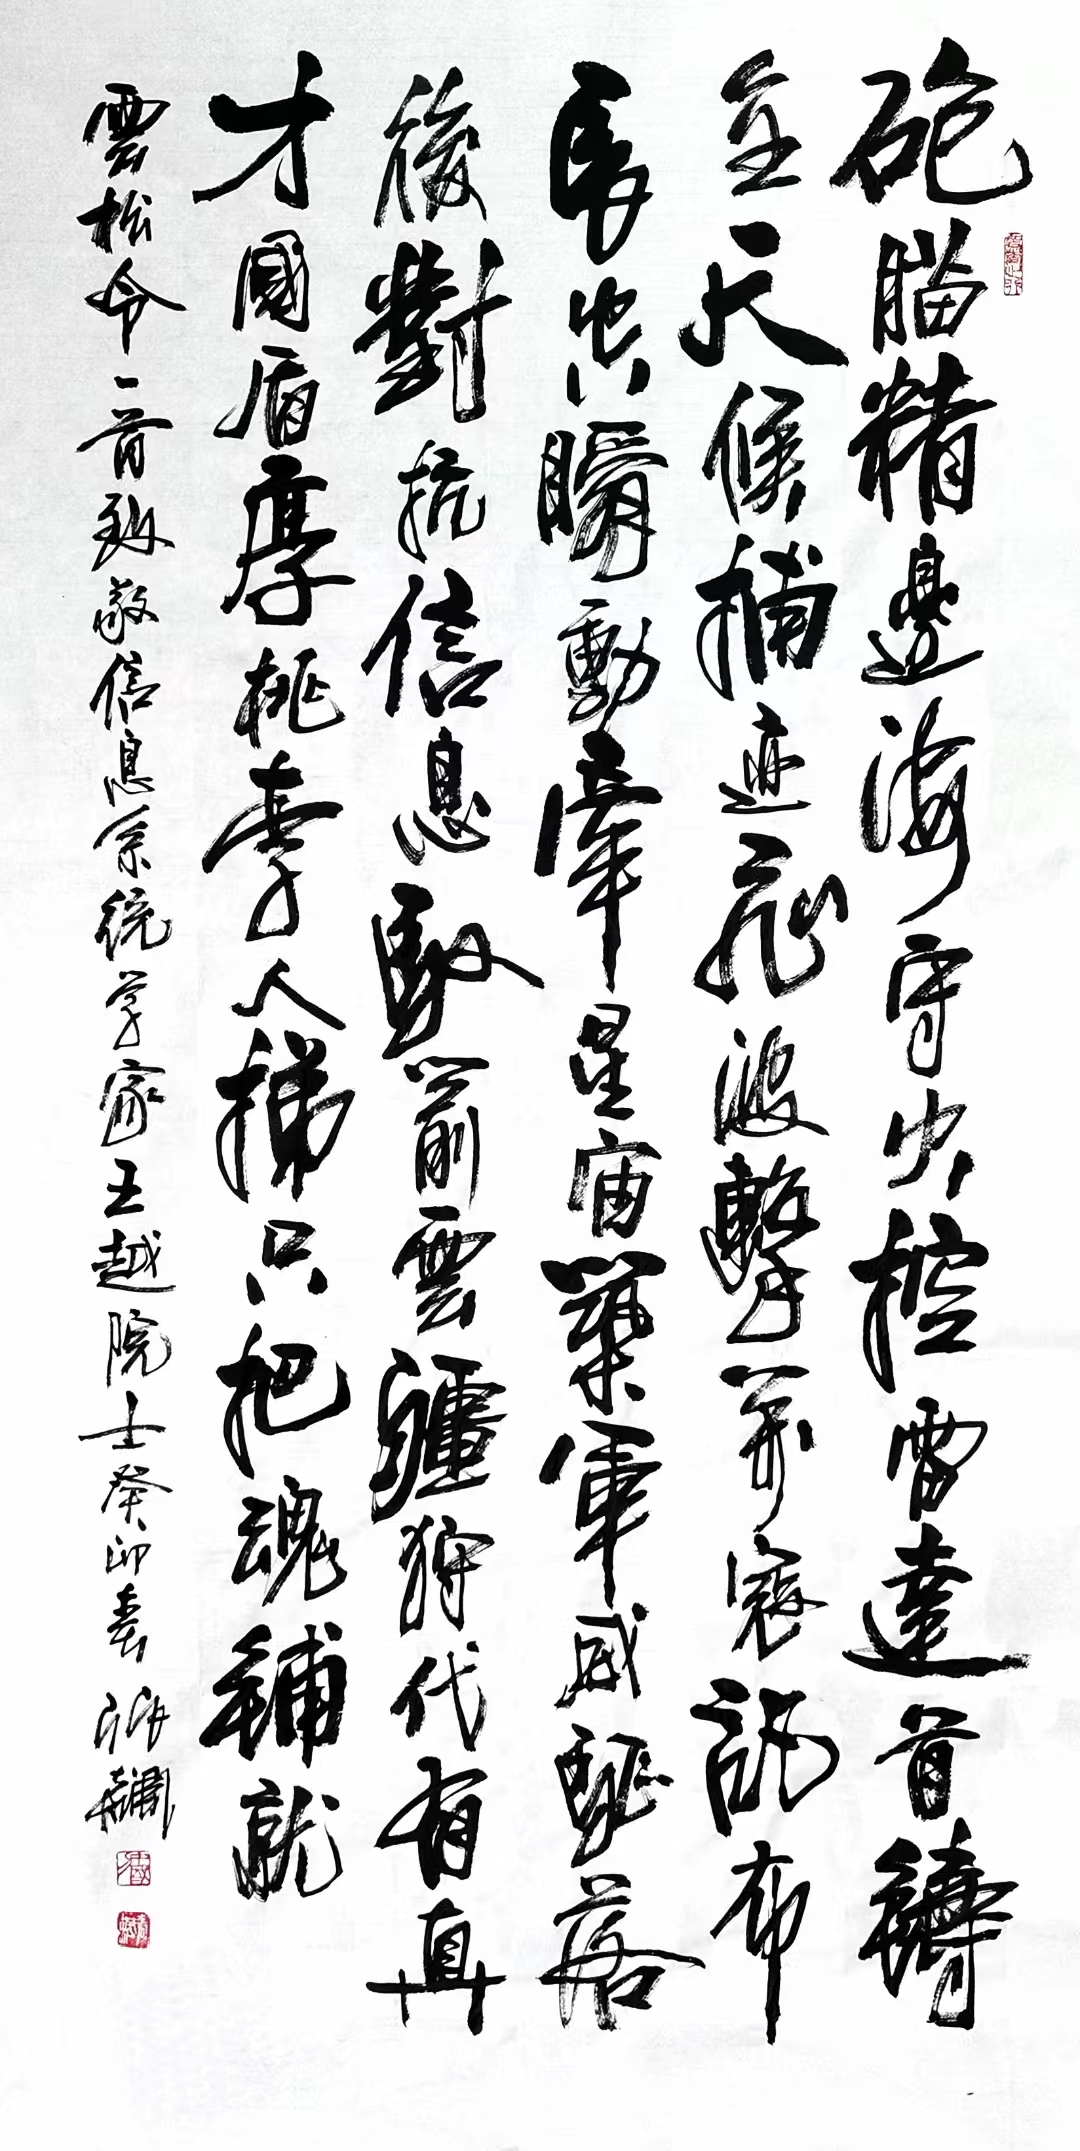 砲腦精邊海守火控雷達首鑄
全天候捕迹飛波擊寇訊布
長空瞬動牽星宙築軍威落
後對抗信息馭箭雲疆狩代有真
才國盾厚桃李人梯只把魂鋪就
雲松令一首致敬信息系統学家王越院士癸卯春